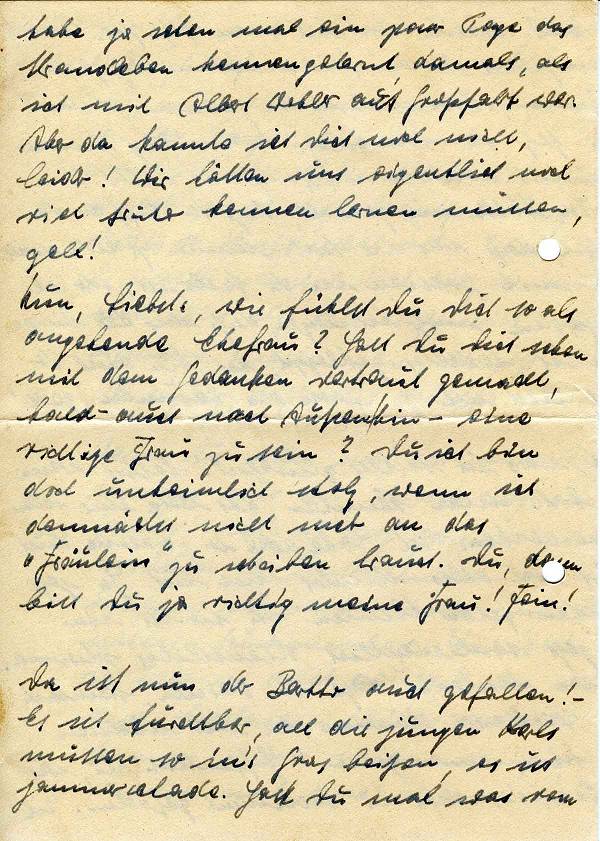 habe ja schon mal ein paar Tage das
kennengelernt, damals, als
ich mit Albert auf Großfahrt war.
Aber da kannte ich Dich noch nicht,
leider! Wir hätten uns eigentlich noch
viel früher kennen lernen müssen,
gell!
Nun, Liebste, wie fühlst Du Dich so als
angehende Ehefrau? Hast Du Dich schon
mit dem Gedanken vertraut gemacht,
bald - auch nach Außen hin - eine
richtige Frau zu sein? Du ich bin
doch unheimlich stolz, wenn ich
demnächst nicht mehr an das
"Fräulein" zu schreiben brauch. Du, dann
bist Du ja richtig meine Frau! Fein!
Da ist nun der auch gefallen! -
Es ist furchtbar, all die jungen Kerls
müssen so in's Gras beißen, es ist
jammerschade. Hast Du mal was vom